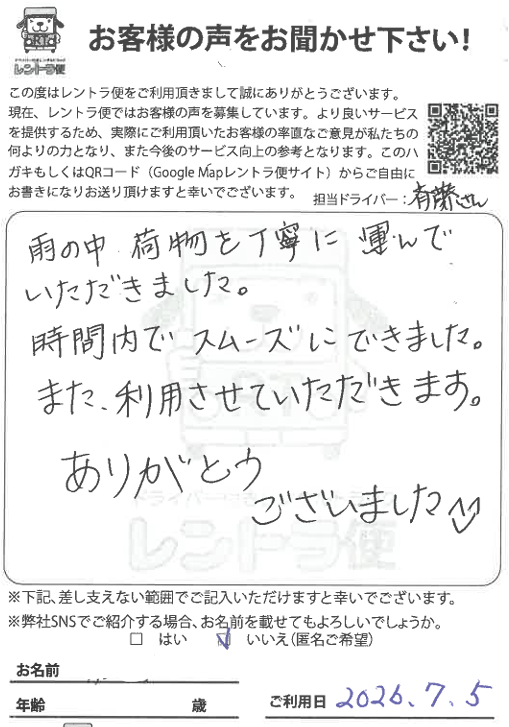 お客様の声をお聞かせ下さい!
レントラ便
この度はレントラ便をご利用頂きまして誠にありがとうございます。
現在、レントラ便ではお客様の声を募集しています。より良いサービス
を提供するため、実際にご利用頂いたお客様の率直なご意見が私たちの
何よりの力となり、また今後のサービス向上の参考となります。このハ
ガキもしくはQRコード（Google Mapレントラ便サイト）からご自由に
お書きになりお送り頂けますと幸いでございます。
担当ドライバー：有藤さん
雨の中 荷物を丁寧に 運んで
いただきました。
時間内で スムーズにできました。
また、利用させていただきます。
ありがとう
ございました
レントラ便
※下記、差し支えない範囲でご記入いただけますと幸いでございます。
※弊社SNSでご紹介する場合、お名前を載せてもよろしいでしょうか。
□ はい ☑ いいえ(匿名ご希望)
お名前
年齢 歳
ご利用日 2026.7.5